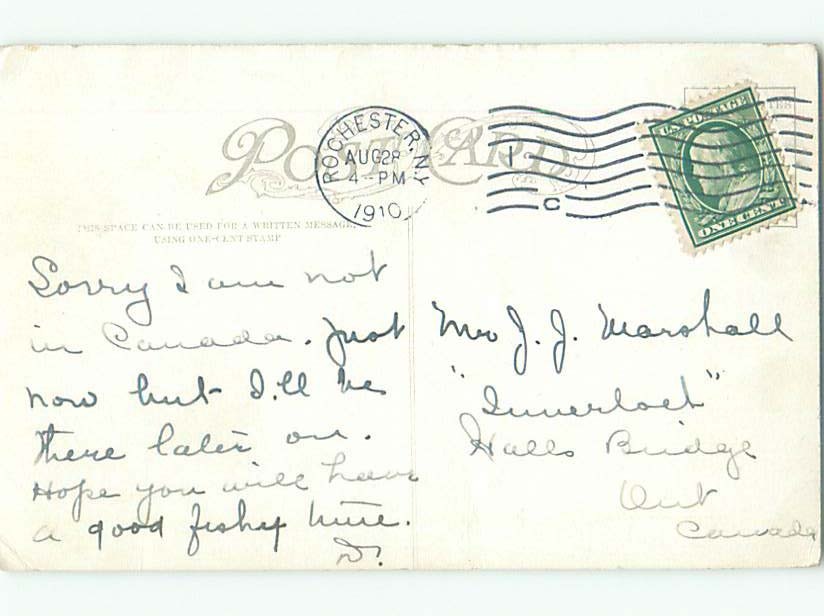 POST CARD
ROCHESTER, N.Y.
AUG 28
4 - PM
1910
1
C
U.S. POSTAGE
ONE CENT
THIS SPACE CAN BE USED FOR A WRITTEN MESSAGE,
USING ONE-CENT STAMP
Sorry I am not
in Canada. Just
now but I'll be
there later on.
Hope you will have
a good fishy time.
D.
J. J. Marshall
"
"
Halls Bridge
Ont
Canada